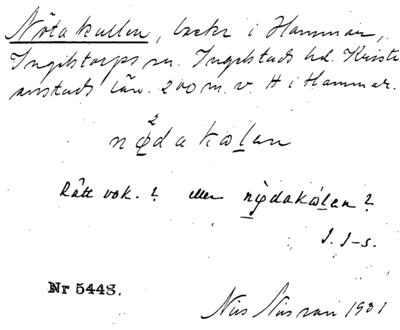 Nötakullen, backe i Hammar,
Ingelstorps sn. Ingelstads hd. Kristi-
anstads län. 200 m. v. H i Hammar.
nø̀dakølan
Rätt vok.? eller nø̀dakølan?
J. J-s.
Nr 5448.
Nils Nilsson 1931